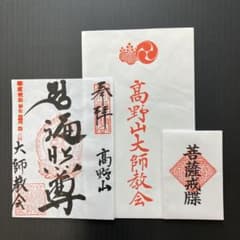 奉拝
高野山
遍照尊
大師教会
高野山大師教会
菩薩戒牒